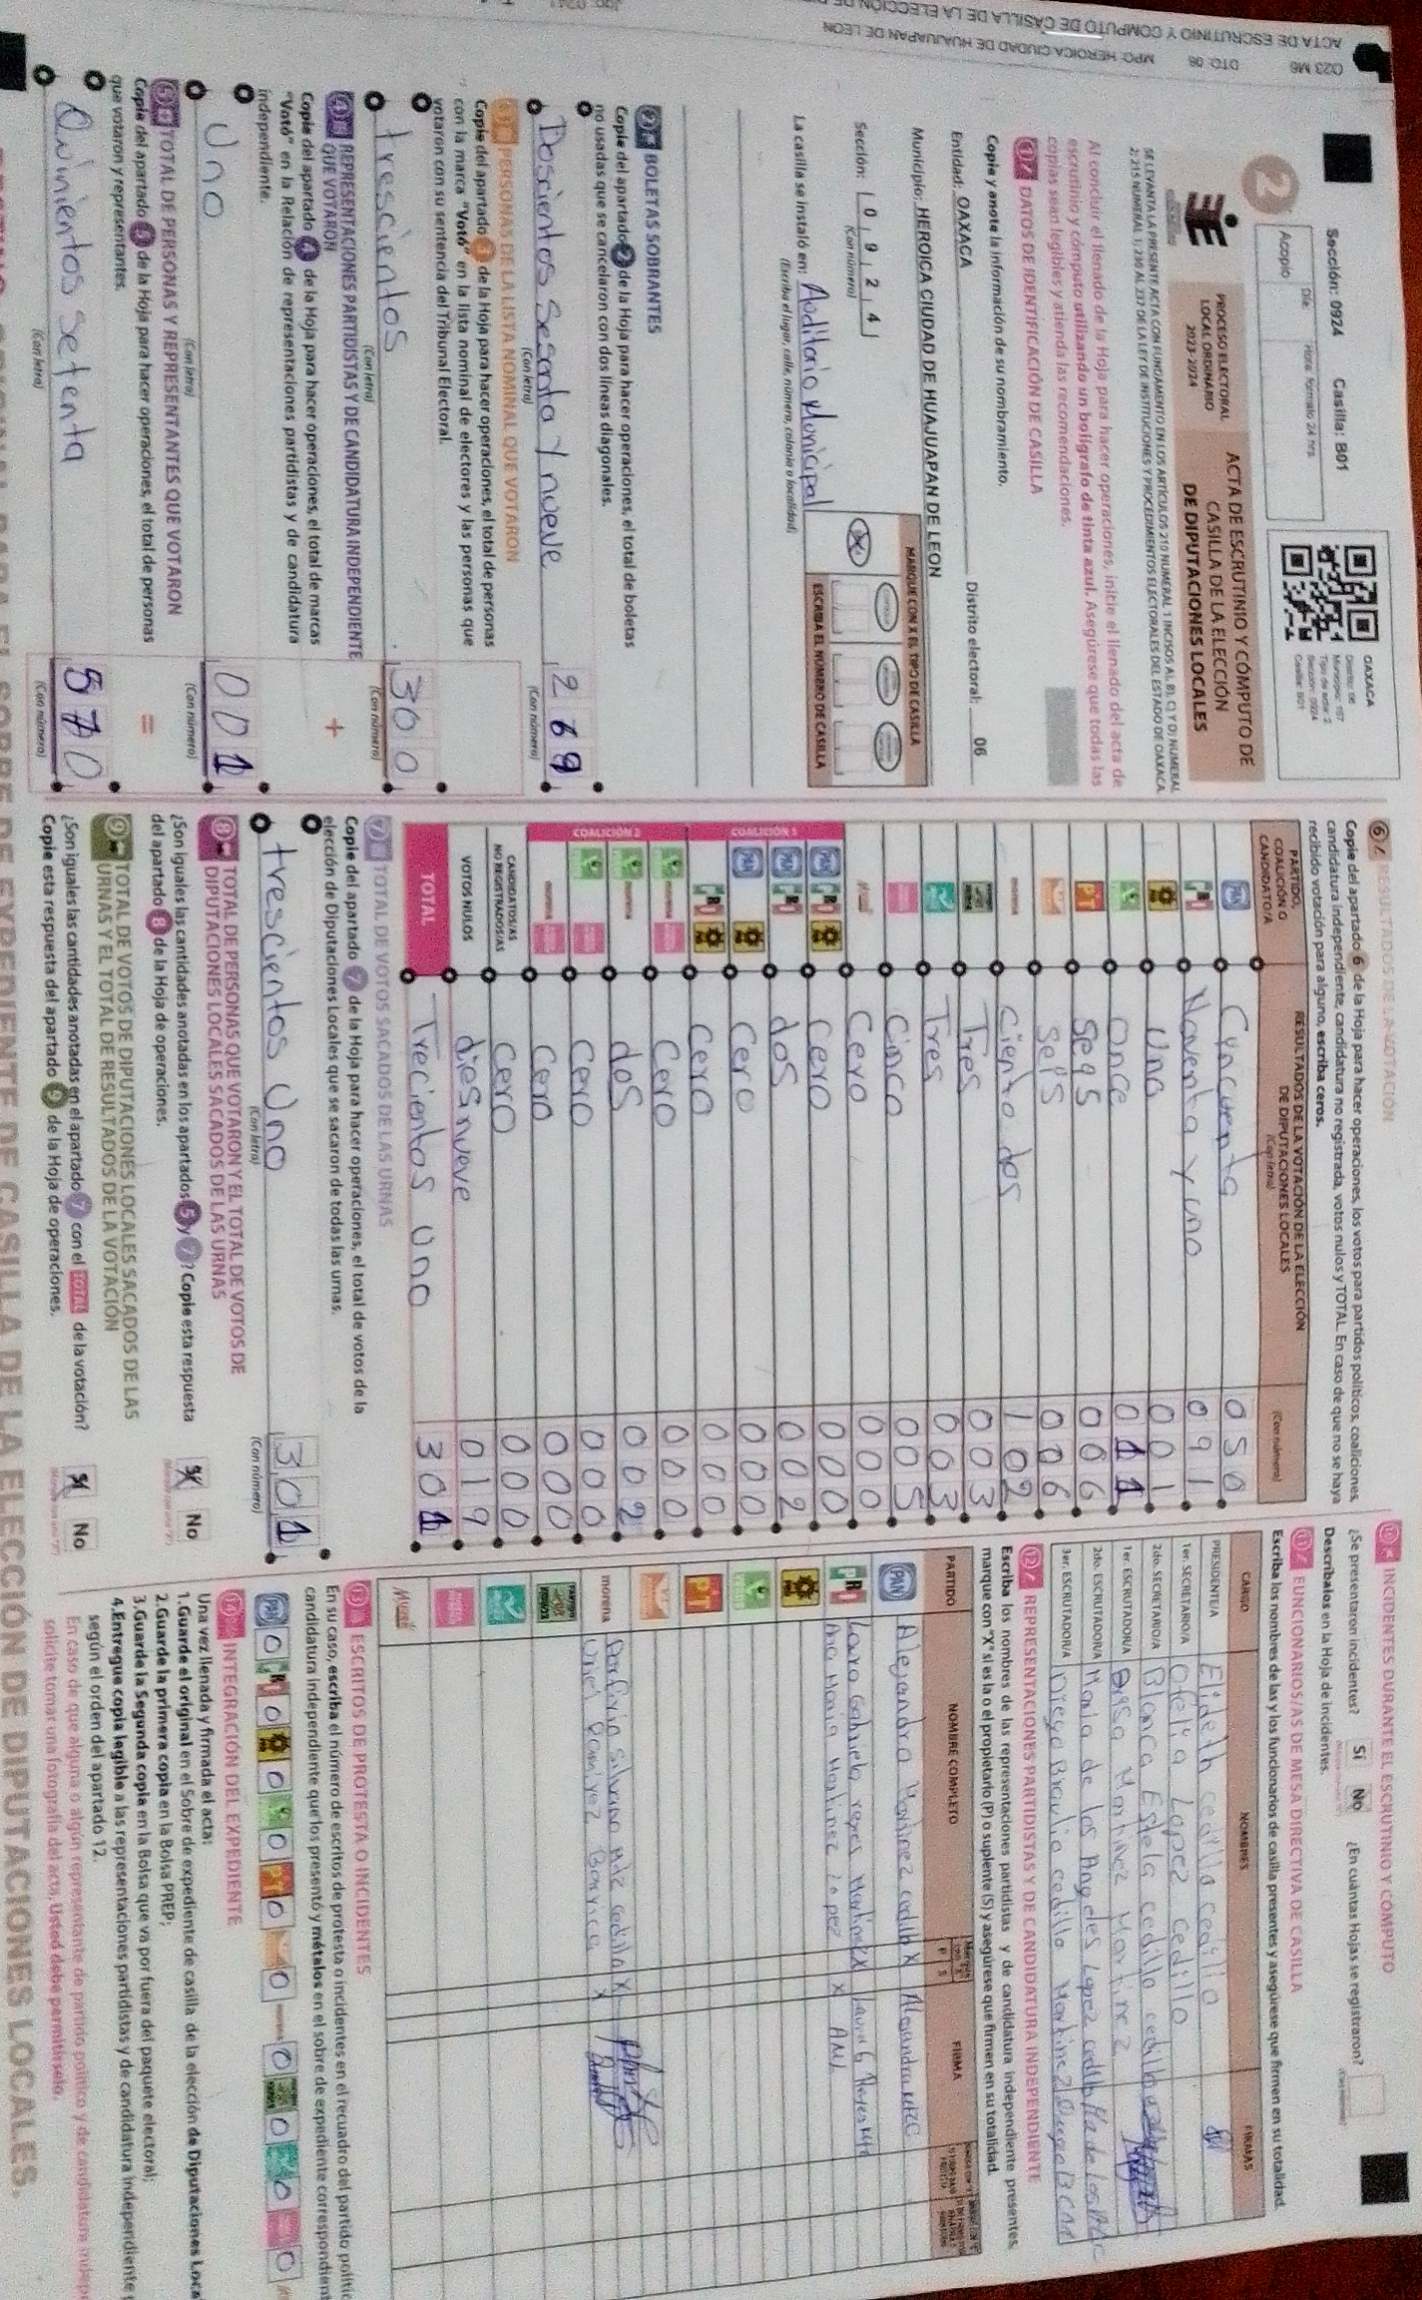 ACTA DE ESCRUTINIO Y CÓMPUTO DE CASILLA DE LA ELECCIÓN DE
O23 M6 DTO: 06 MPO: HEROICA CIUDAD DE HUAJUAPAN DE LEON
Sección: 0924 Casilla: B01
2
Acopio
Día:
Hora: formato 24 hrs.
OAXACA
Distrito: 06
Sección: 0924
Casilla: B01
PROCESO ELECTORAL
LOCAL ORDINARIO
2023-2024
ACTA DE ESCRUTINIO Y CÓMPUTO DE
CASILLA DE LA ELECCIÓN
DE DIPUTACIONES LOCALES
Al concluir el llenado de la Hoja para hacer operaciones, inicie el llenado del acta de
escrutinio y cómputo utilizando un bolígrafo de tinta azul. Asegúrese que todas las
copias sean legibles y atienda las recomendaciones.
1 DATOS DE IDENTIFICACIÓN DE CASILLA
Copie y anote la información de su nombramiento.
Entidad: OAXACA Distrito electoral: 06
Municipio: HEROICA CIUDAD DE HUAJUAPAN DE LEON
Sección: 0 9 2 4
(Con número)
MARQUE CON X EL TIPO DE CASILLA
ESCRIBA EL NÚMERO DE CASILLA
La casilla se instaló en: Auditorio Municipal
(Escriba el lugar, calle, número, colonia o localidad)
2 BOLETAS SOBRANTES
Copie del apartado 2 de la Hoja para hacer operaciones, el total de boletas
no usadas que se cancelaron con dos líneas diagonales.
Doscientos Sesenta y nueve 2 6 9
(Con letra) (Con número)
3 PERSONAS DE LA LISTA NOMINAL QUE VOTARON
Copie del apartado 3 de la Hoja para hacer operaciones, el total de personas
con la marca "Votó" en la lista nominal de electores y las personas que
votaron con su sentencia del Tribunal Electoral.
trescientos 3 0 0
(Con letra) (Con número)
4 REPRESENTACIONES PARTIDISTAS Y DE CANDIDATURA INDEPENDIENTE
QUE VOTARON
Copie del apartado 4 de la Hoja para hacer operaciones, el total de marcas
"Votó" en la Relación de representaciones partidistas y de candidatura
independiente.
+
Uno 0 0 1
(Con letra) (Con número)
5 TOTAL DE PERSONAS Y REPRESENTANTES QUE VOTARON
Copie del apartado 5 de la Hoja para hacer operaciones, el total de personas
que votaron y representantes.
=
Quinientos setenta 5 7 0
(Con letra) (Con número)
6 RESULTADOS DE LA VOTACIÓN
Copie del apartado 6 de la Hoja para hacer operaciones, los votos para partidos políticos, coaliciones,
candidatura independiente, candidatura no registrada, votos nulos y TOTAL. En caso de que no se haya
recibido votación para alguno, escriba ceros.
PARTIDO, COALICIÓN O CANDIDATO/A
RESULTADOS DE LA VOTACIÓN DE LA ELECCIÓN DE DIPUTACIONES LOCALES
(Con letra) (Con número)
PAN Cyncuenta 0 5 0
PRI Noventa y uno 0 9 1
PRD Una 0 0 1
Once 0 1 1
PT Segs 0 0 6
Seis 0 0 6
morena Ciento dos 1 0 2
Tres 0 0 3
Tres 0 0 3
Cinco 0 0 5
Cero 0 0 0
COALICIÓN 1
PAN PRI PRD Cero 0 0 0
PAN PRI dos 0 0 2
PAN PRD Cero 0 0 0
PRI PRD Cero 0 0 0
COALICIÓN 2
Cero 0 0 0
dos 0 0 2
Cero 0 0 0
Cero 0 0 0
CANDIDATOS/AS NO REGISTRADOS/AS Cero 0 0 0
VOTOS NULOS dies nueve 0 1 9
TOTAL Trecientos uno 3 0 1
7 TOTAL DE VOTOS SACADOS DE LAS URNAS
Copie del apartado 7 de la Hoja para hacer operaciones, el total de votos de la
elección de Diputaciones Locales que se sacaron de todas las urnas.
trescientos uno 3 0 1
(Con letra) (Con número)
8 TOTAL DE PERSONAS QUE VOTARON Y EL TOTAL DE VOTOS DE
DIPUTACIONES LOCALES SACADOS DE LAS URNAS
¿Son iguales las cantidades anotadas en los apartados 5 y 7? Copie esta respuesta
del apartado 8 de la Hoja de operaciones.
Sí No
9 TOTAL DE VOTOS DE DIPUTACIONES LOCALES SACADOS DE LAS
URNAS Y EL TOTAL DE RESULTADOS DE LA VOTACIÓN
¿Son iguales las cantidades anotadas en el apartado 7 con el TOTAL de la votación?
Copie esta respuesta del apartado 9 de la Hoja de operaciones.
Sí No
10 INCIDENTES DURANTE EL ESCRUTINIO Y CÓMPUTO
¿Se presentaron incidentes? Sí No ¿En cuántas Hojas se registraron?
Descríbalos en la Hoja de incidentes.
11 FUNCIONARIOS/AS DE MESA DIRECTIVA DE CASILLA
Escriba los nombres de las y los funcionarios de casilla presentes y asegúrese que firmen en su totalidad.
CARGO NOMBRES FIRMAS
PRESIDENTE/A Elideth cedillo cedillo
1er. SECRETARIO/A Ofelia Lopez cedillo
2do. SECRETARIO/A Blanca Estela cedillo cedillo
1er. ESCRUTADOR/A Martinez Martinez
2do. ESCRUTADOR/A Maria de los Angeles Lopez
3er. ESCRUTADOR/A Diego Braulio cedillo Martinez
12 REPRESENTACIONES PARTIDISTAS Y DE CANDIDATURA INDEPENDIENTE
Escriba los nombres de las representaciones partidistas y de candidatura independiente presentes,
marque con "X" si es la o el propietario (P) o suplente (S) y asegúrese que firmen en su totalidad.
PARTIDO NOMBRE COMPLETO P S FIRMA
PAN Alejandra Martinez cedillo X Alejandra
PRI Laura Gabriela reyes Martinez X
Ana Maria Martinez Lopez X AML
PRD
PT
morena Porfirio silvano cedillo X
Uriel Ramirez Barrios X
13 ESCRITOS DE PROTESTA O INCIDENTES
En su caso, escriba el número de escritos de protesta o incidentes en el recuadro del partido polític
candidatura independiente que los presentó y métalos en el sobre de expediente correspondient
PAN 0 PRI 0 PRD 0 0 PT 0 0 morena 0 0 0 0
14 INTEGRACIÓN DEL EXPEDIENTE
Una vez llenada y firmada el acta:
1.Guarde el original en el Sobre de expediente de casilla de la elección de Diputaciones Loca
2.Guarde la primera copia en la Bolsa PREP;
3.Guarde la Segunda copia en la Bolsa que va por fuera del paquete electoral;
4.Entregue copia legible a las representaciones partidistas y de candidatura independiente
según el orden del apartado 12.
En caso de que alguna o algún representante de partido político y de candidatura indep
solicite tomar una fotografía del acta, Usted debe permitírselo.
EXPEDIENTE DE CASILLA DE LA ELECCIÓN DE DIPUTACIONES LOCALES.